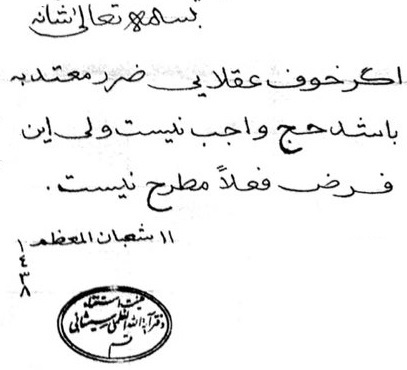 بسمه تعالی شانه
اگر خوف عقلایی ضرر معتد به
باشد حج واجب نیست ولی این
فرض فعلاً مطرح نیست.
۱۱ شعبان المعظم ۱۴۳۸
هیئت استفتاء
دفتر آیة الله العظمی سیستانی
قم